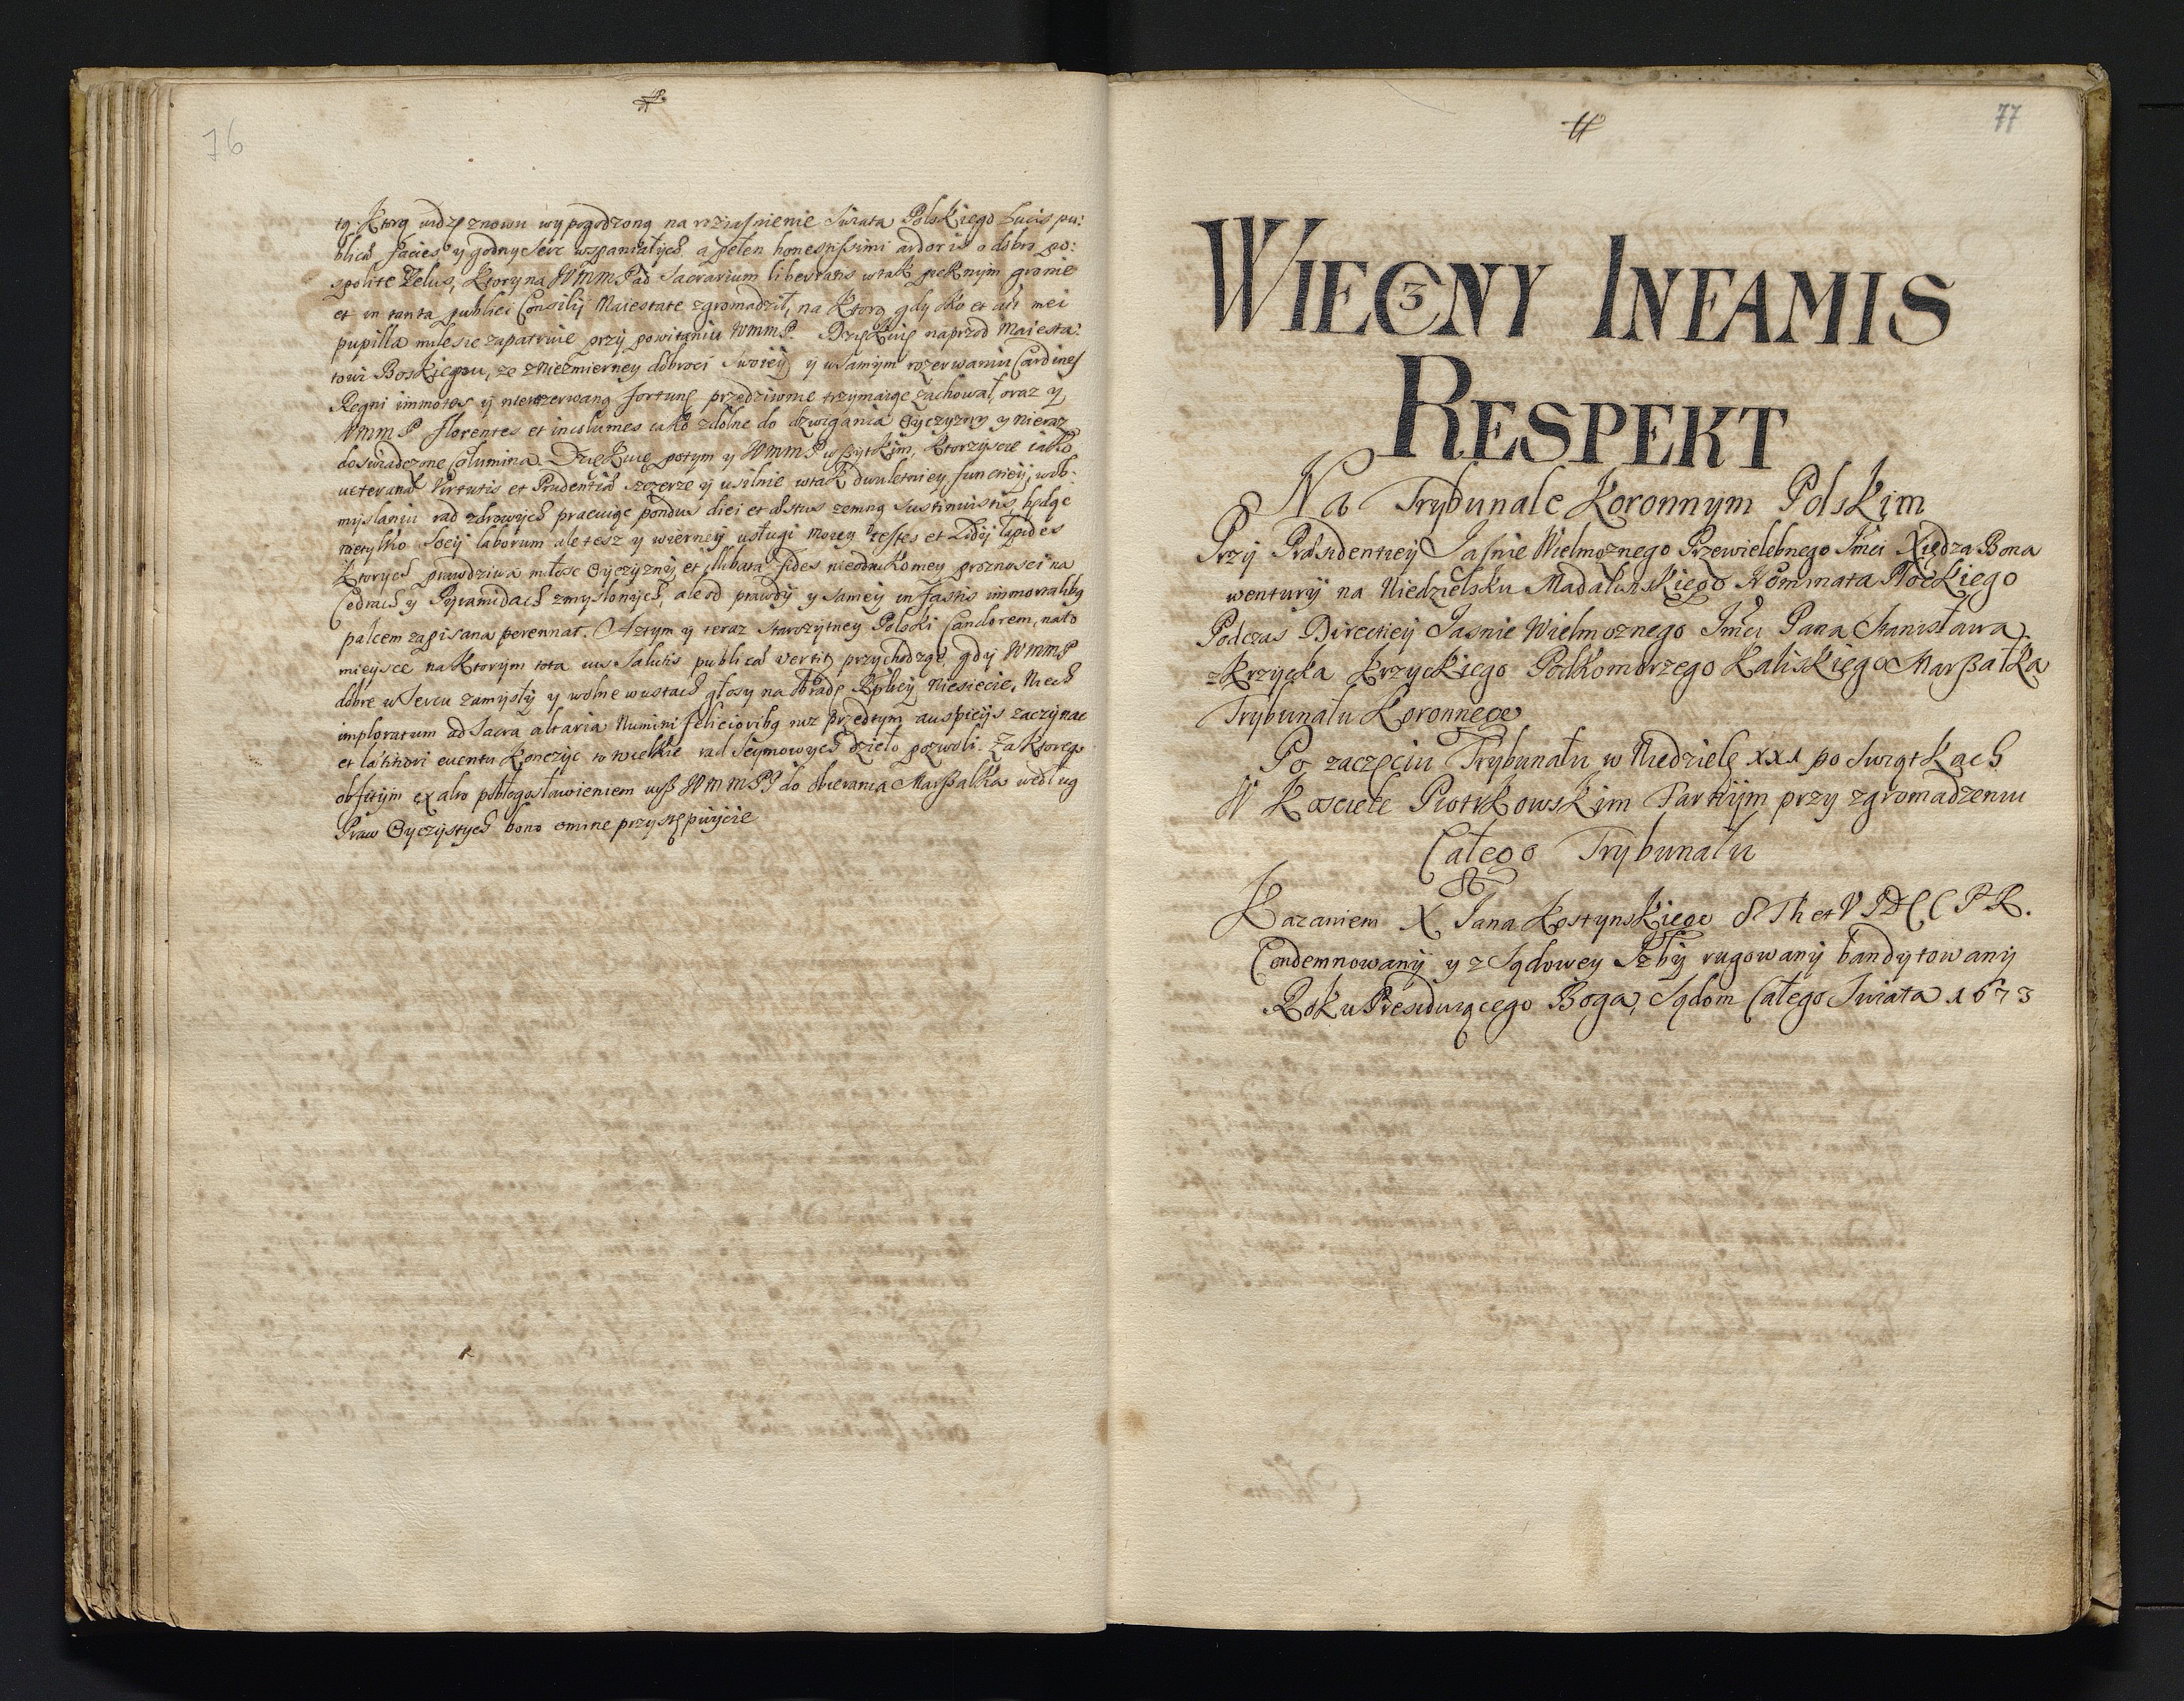 76
tą. Ktorą widzę znowu wypogodzoną na roziaśnienie Swiata Polskiego Lucis pu:
blicæ facies y godnych serc wspaniałych, a pełen honestissimi ardoris o dobro po:
spolite Zelus, Ktory na WMMP ad Sacrarium libertatis w tak pięknym gronie
et in tanta publici Consilij Maiestate zgromadził, na Ktorą gdy oko et
pupilla mile sie zapatruie przy powitaniu WMMP. Dziękuię naprzod Maiesta:
towi Boskiemu, ze z niezmierney dobroci swoiey y w samym rozerwaniu Cardines
Regni immotos y nierozerwaną fortunę przedziwnie trzymaiąc zachował, oraz y
WMMP florentes et incolumes iako zdolne do dzwigania Oyczyzny y nieraz
doswiadczone Columina. Dziękuię potym y WMMP wszytkim, Ktorzyscie iako
veteranæ Virtutis et Prudentiæ szczerze y usilnie w tak dwuletniey functiey, w ob:
myslaniu rad zdrowych pracuiąc pondus diei et æstus zemną sustinuistis, będąc
nietylko Socij laborum ale tesz y wierney usługi moiey testes et Lidij lapides
Ktorych prawdziwa miłosc Oyczyzny et illibata fides nieodnikomey proznosci na
Cedrach y Pyramidach zmyslonych, ale od prawdy y samey in fastis immortalibq
palcem zapisana perennat. A ztym y teraz starozytney Polski Candorem, na to
mieysce na Ktorym tota vis Salutis publicæ vertitq przychodząc, gdy WMMP
dobre w sercu zamysły y wolne w ustach głosy na obradę Rplcey niesiecie, Niech
imploratum ad Sacra altaria Numini felicioribq niz przedtym auspicijs zaczynac
et lætiori eventu Konczyc to wielkie rad Seymowych dzieło pozwoli. Za Ktorego
obfitym ex alto pobłogosławieniem usz WMMPP do obierania Marszałka według
Praw Oyczystych bono omine przystępuycie
77
WIECZNY INFAMIS
RESPEKT
Na Trybunale Koronnym Polskim
Przy Præsidentiey Jasnie Wielmoznego Przewielebnego Jmci Xiędza Bona
wentury na Niedzielsku Madalinskiego Nominata Płockiego
Podczas Directiey Jasnie Wielmoznego Jmci Pana Stanisława
z Krzycka Krzyckiego Podkomorzego Kaliskiego Marszałka
Trybunału Koronnego
Po zaczęciu Trybunału w Niedzielę XXI po Swiątkach
W Kosciele Piotrkowskim Farnym przy zgromadzeniu
Całego Trybunału
Kazaniem X Jana Kostynskiego S Th et V I D C C P R.
Condemnowany y z Sądowey Izby rugowany bandytowany
Roku Presiduiącego Boga, Sądom Całego Swiata 1673